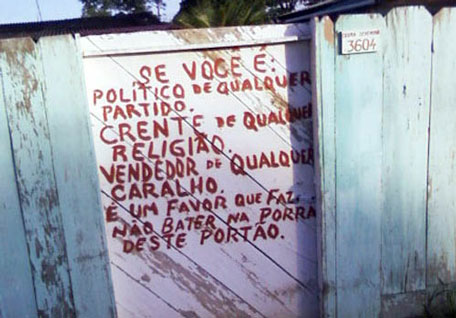 SE VOCÊ É:
POLÍTICO DE QUALQUER
PARTIDO.
CRENTE DE QUALQUER
RELIGIÃO.
VENDEDOR DE QUALQUER
CARALHO.
É UM FAVOR QUE FAZ
NÃO BATER NA PORRA
DESTE PORTÃO.
3604